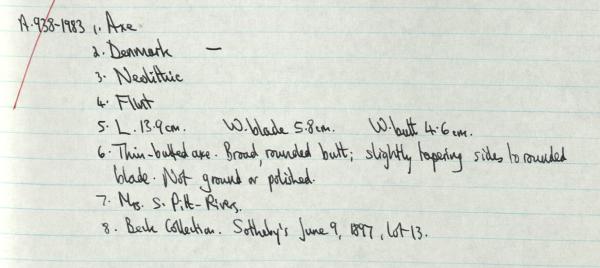 A.938-1983 1. Axe
2. Denmark —
3. Neolithic
4. Flint
5. L. 13.9cm. W. blade 5.8cm. W. butt 4.6cm.
6. Thin-butted axe. Broad, rounded butt; slightly tapering sides to rounded
blade. Not ground or polished.
7. Mrs. S. Pitt-Rivers.
8. Beck Collection. Sotheby's June 9, 1897, lot 13.